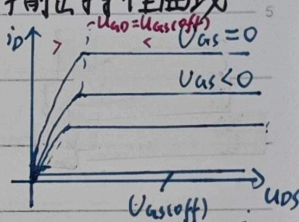 5
u_GD=U_GS(off)
i_D > < U_GS=0
U_GS<0
U_GS(off) u_DS